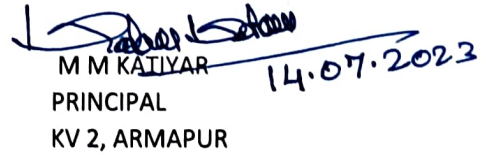 M M KATIYAR
14.07.2023
PRINCIPAL
KV 2, ARMAPUR